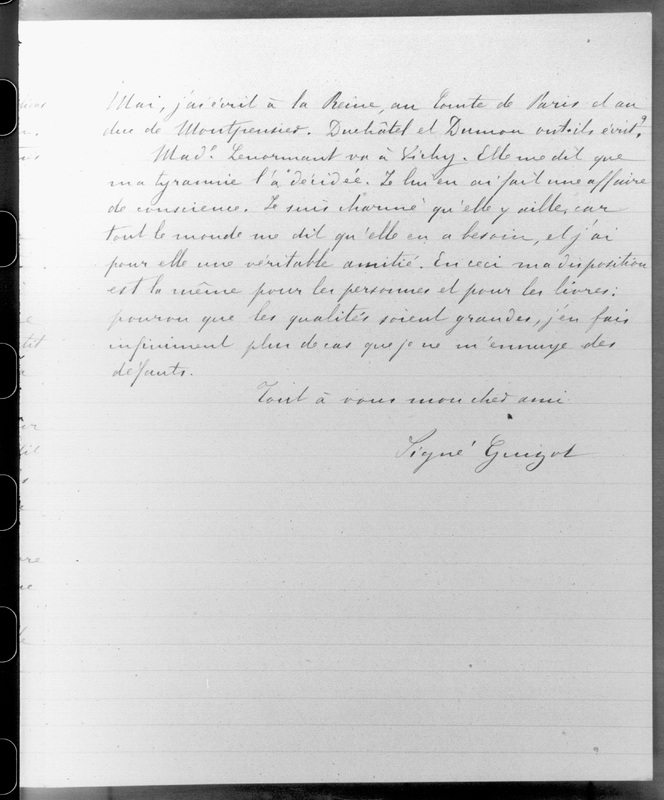 Mai, j'ai écrit à la Reine, au Comte de Paris et au
duc de Montpensier. Duchâtel et Dumon ont-ils écrit ?
Made. Lenormant va à Vichy. Elle me dit que
ma tyrannie l'a décidée. Je lui en ai fait une affaire
de conscience. Je suis charmé qu'elle y aille, car
tout le monde me dit qu'elle en a besoin, et j'ai
pour elle une véritable amitié. En ceci ma disposition
est la même pour les personnes et pour les livres :
pourvu que les qualités soient grandes, j'en fais
infiniment plus de cas que je ne m'ennuye des
défauts.
Tout à vous mon cher ami
Signé Guizot